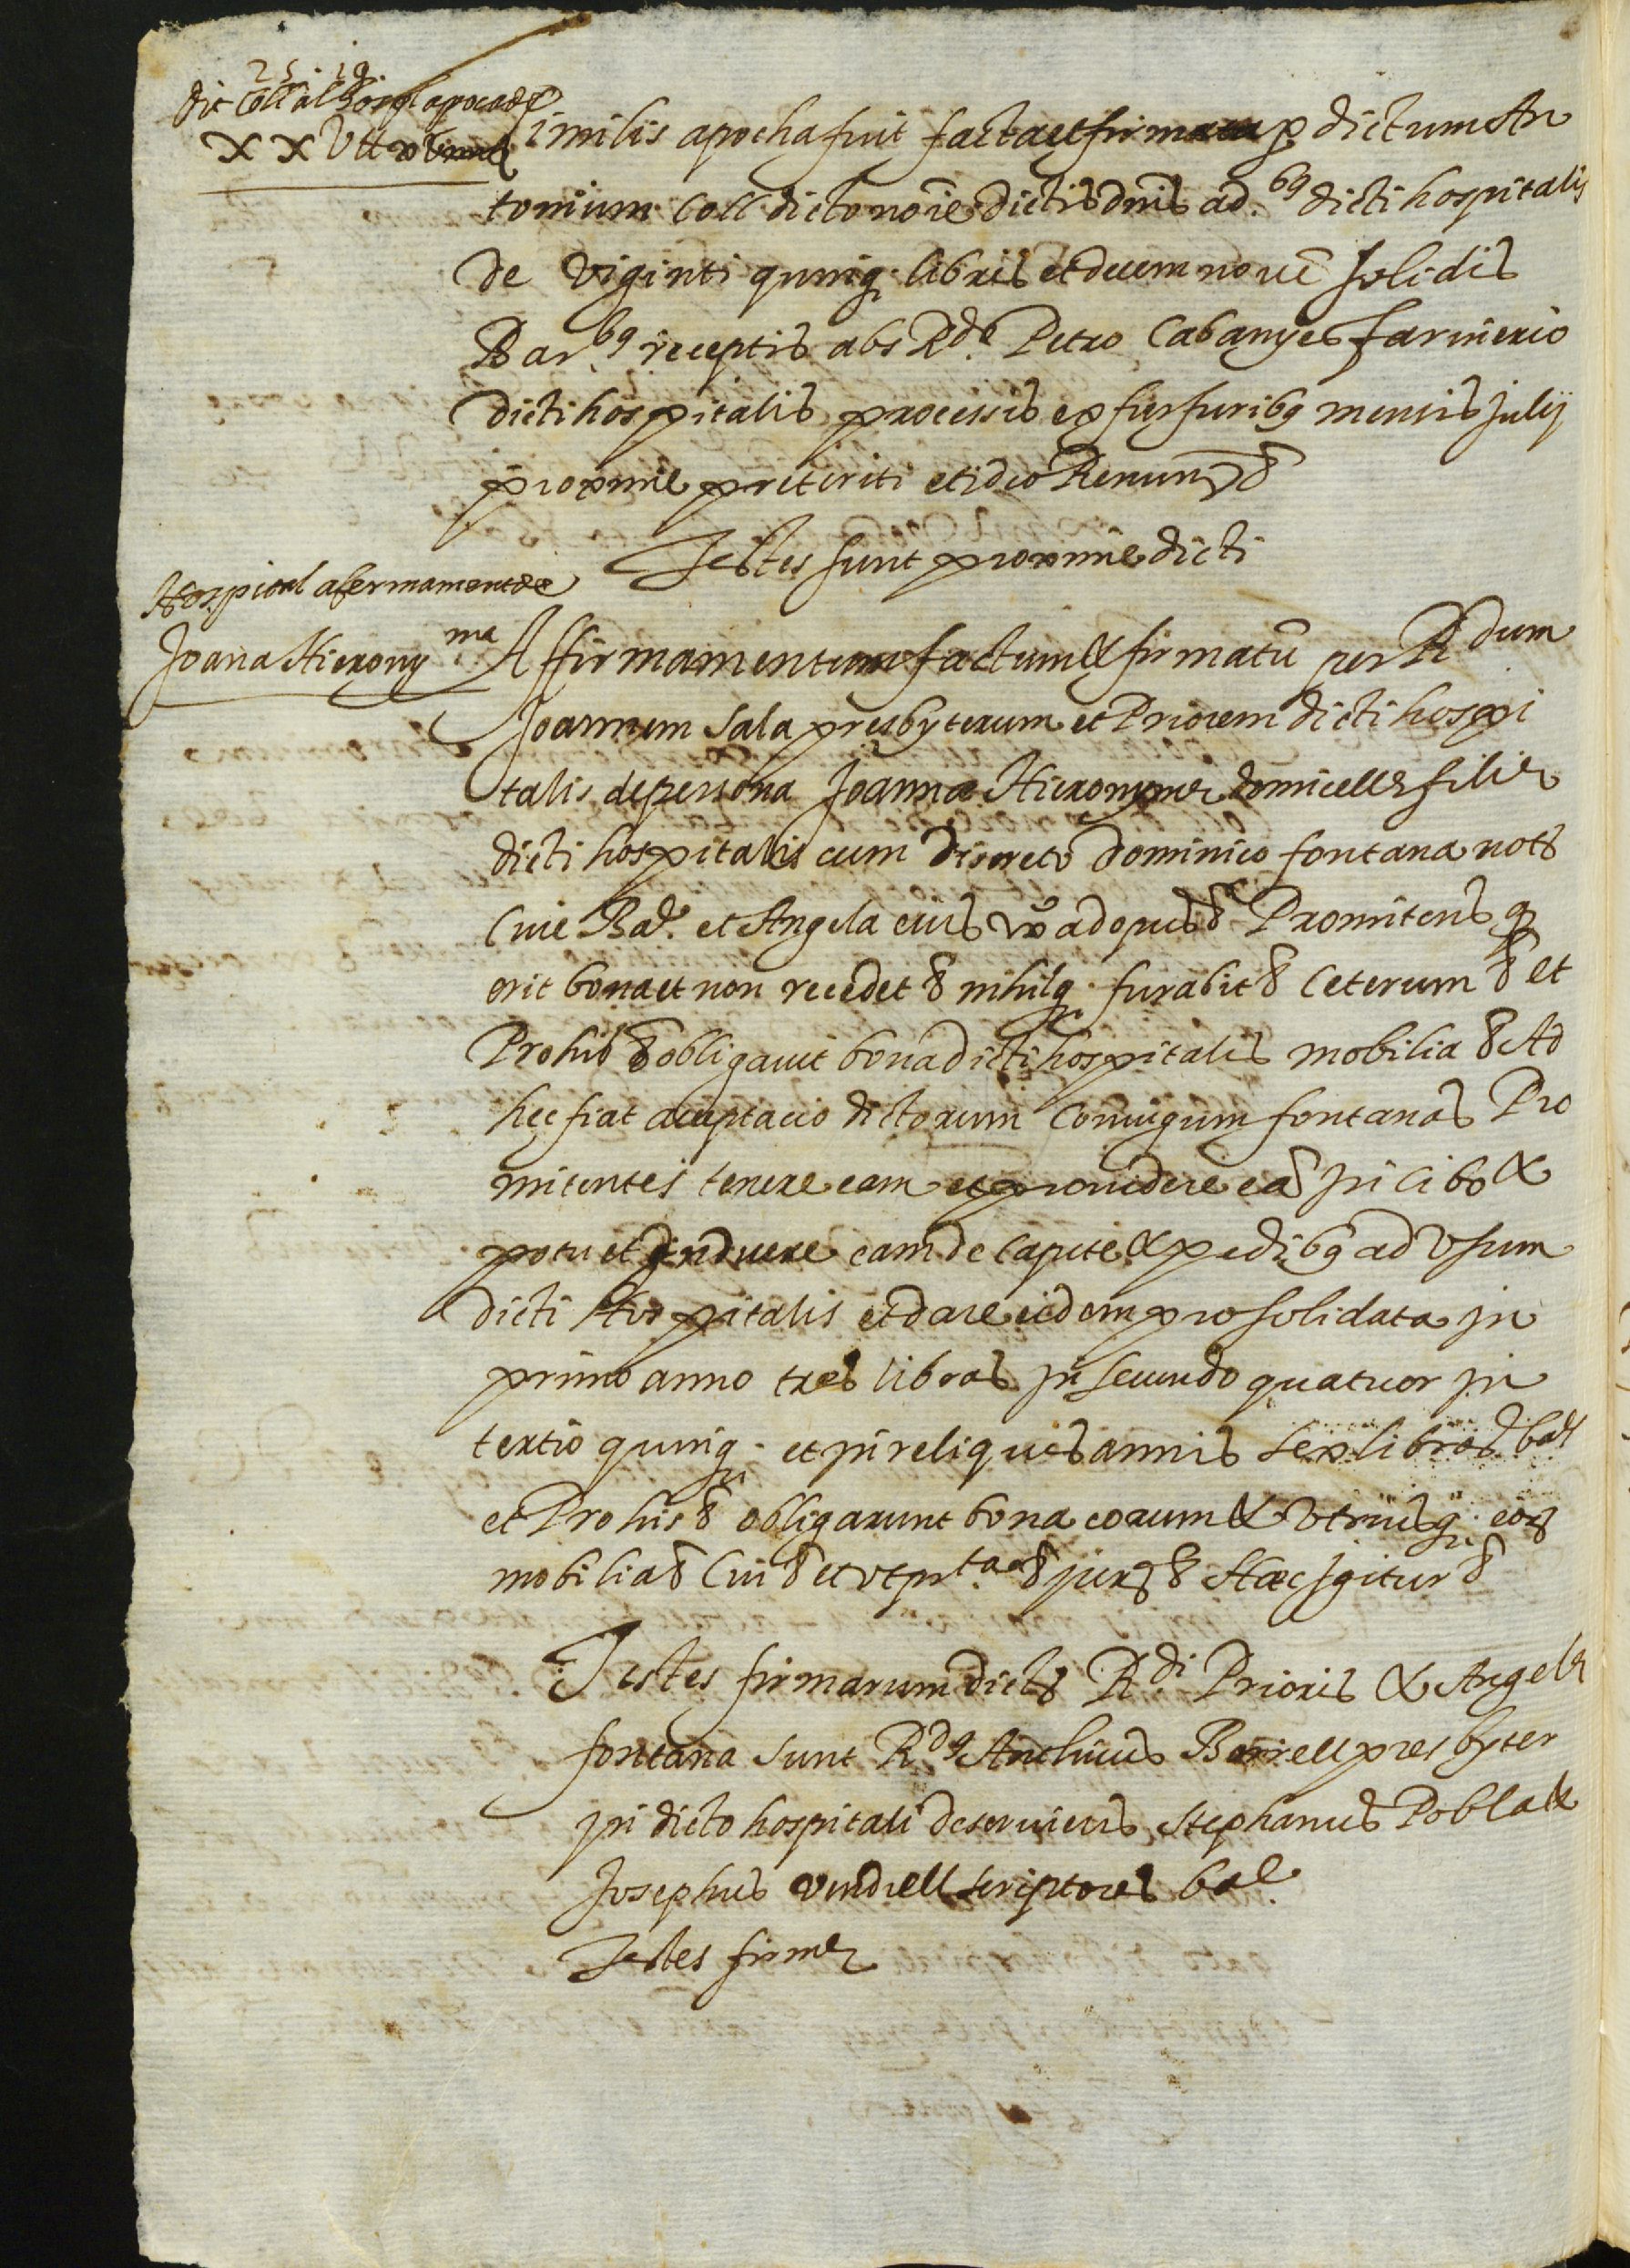 25 · 19
dit Coll al Hospl apoca de
XXV ll
Similis apocha fuit facta et firmata p dictum An
tonium Coll dicto noīe dictis dnis ad.bq dicti hospitalis
de viginti quinq. libris et decem novē solidis
Bar.bq receptis abs Rdo. Petro Cabanyes farinerio
dicti hospitalis processis ex furfuribq mensis Julij
proxime preteriti et ideo Renun &
Testes sunt proxime dicti
Hospital afermament de
Joana Hieronyma
Affirmamentum factum & firmatū per Rdum
Joannem Sala presbyterum et Priorem dicti hospi
talis de persona Joannæ Hieronymæ domicellæ filiæ
dicti hospitalis cum discreto Dominico fontana not
Cive Bar. et Angela eius vx ad opus & Promitens q
erit bona et non recedet & nihilq. furabit & Ceterum & et
Prohib & obligavit bona dicti hospitalis mobilia & Ad
hec fiat acceptacio dictorum Coniugum fontanas Pro
mitentes tenere eam et providere eā in cibo &
potu et induere eam de capite & pedibq ad usum
dicti Hospitalis et dare eidem pro solidata in
primo anno tres libras in secundo quatuor in
tertio quinq. et in reliquis annis sex libras bar
et Pro his & obligarunt bona eorum & utriusq. eor
mobilia & Cui & et ut prta & jur & Hæc igitur &
Testes firmarum dict Rdi Prioris & Angelæ
fontana sunt Rdq Anthicus Borrell presbyter
in dicto hospitali deserviens Stephanus Pobla &
Josephus vendrell scriptores bar.
Testes firmæ